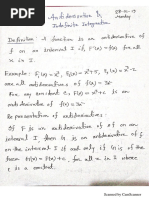 Antiderivative &
Indefinite Integration
Definition: A function is an antiderivative of
f on an interval I if F'(x) = f(x) for all
x in I.
Example: F₁(x) = x³, F₂(x) = x³-5,
are all antiderivatives of f(x) = 3x²
For any constant C, F(x) = x³+C is an
antiderivative of f(x) = 3x².
Representation of antiderivatives:
If F is an antiderivative of f on an
interval I, then G is an antiderivative of
f on the interval I if and only if G is of the
form G(x) = F(x)+C, for all x in I where
C is constant.
Scanned by CamScanner